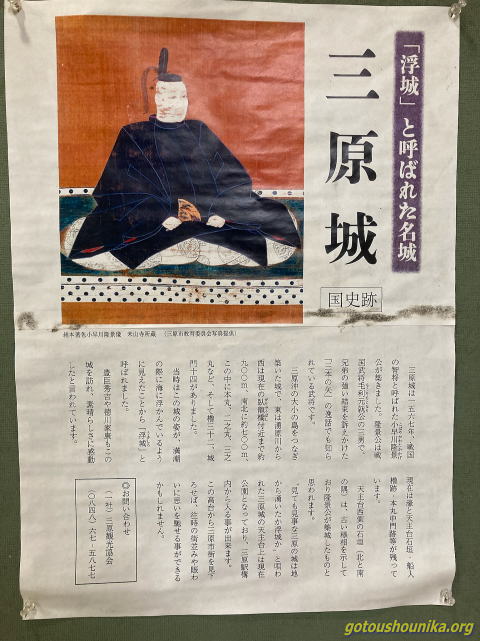 「浮城」と呼ばれた名城
三原城
国史跡
絹本著色小早川隆景像　米山寺所蔵　（三原市教育委員会写真提供）
三原城は一五六七年、戦国
の智将と呼ばれた小早川隆景
公が築きました。隆景公は戦
国武将毛利元就公の三男で、
兄弟の強い結束を訴えかけた
「三本の矢」の逸話でも知ら
れている武将です。
三原沖の大小の島をつなぎ
築いた城で、東は湧原川から
西は現在の臥龍橋付近まで約
九〇〇ｍ、南北に約七〇〇ｍ、
この中に本丸、二之丸、三之
丸など、そして櫓三十二、城
門十四がありました。
当時はこの城の姿が、満潮
の際に海に浮かんでいるよう
に見えたことから「浮城」と
呼ばれました。
豊臣秀吉や徳川家康もこの
城を訪れ、素晴らしさに感動
したと言われています。
現在は濠と天主台石垣・船入
櫓跡・本丸中門跡等が残って
います。
天主台西窓の石垣（北と南
の隅）は、古い様相を示して
おり隆景公が築城したものと
思われます。
“見ても見事な三原の城は地
から湧いたか浮城か”と唄わ
れた三原城の天主台上は現在
公園となっており、三原駅構
内から入る事が出来ます。
この高台から三原市街を見お
ろせば、往時の街並みや賑わ
いに思いを馳せる事ができる
かもしれません。
◎お問い合わせ
（一社）三原観光協会
（〇八四八）六七‐五八七七
gotoushounika.org